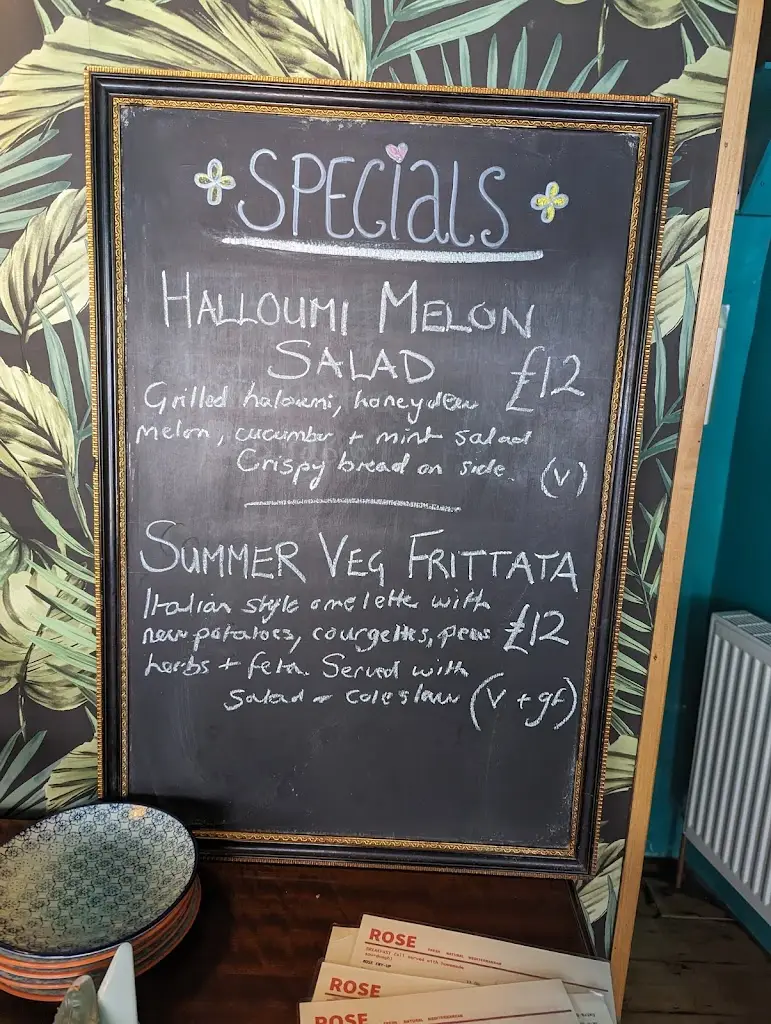 SPECiaLS
HALLOUMI MELON
SALAD £12
Grilled haloumi, honeydew
melon, cucumber + mint salad
Crispy bread on side. (V)
SUMMER VEG FRITTATA
Italian style omelette with
new potatoes, courgettes, peas £12
herbs + feta. Served with
salad - coleslaw (V + gf)
ROSE FRESH NATURAL MEDITERRANEAN
ROSE
ROSE